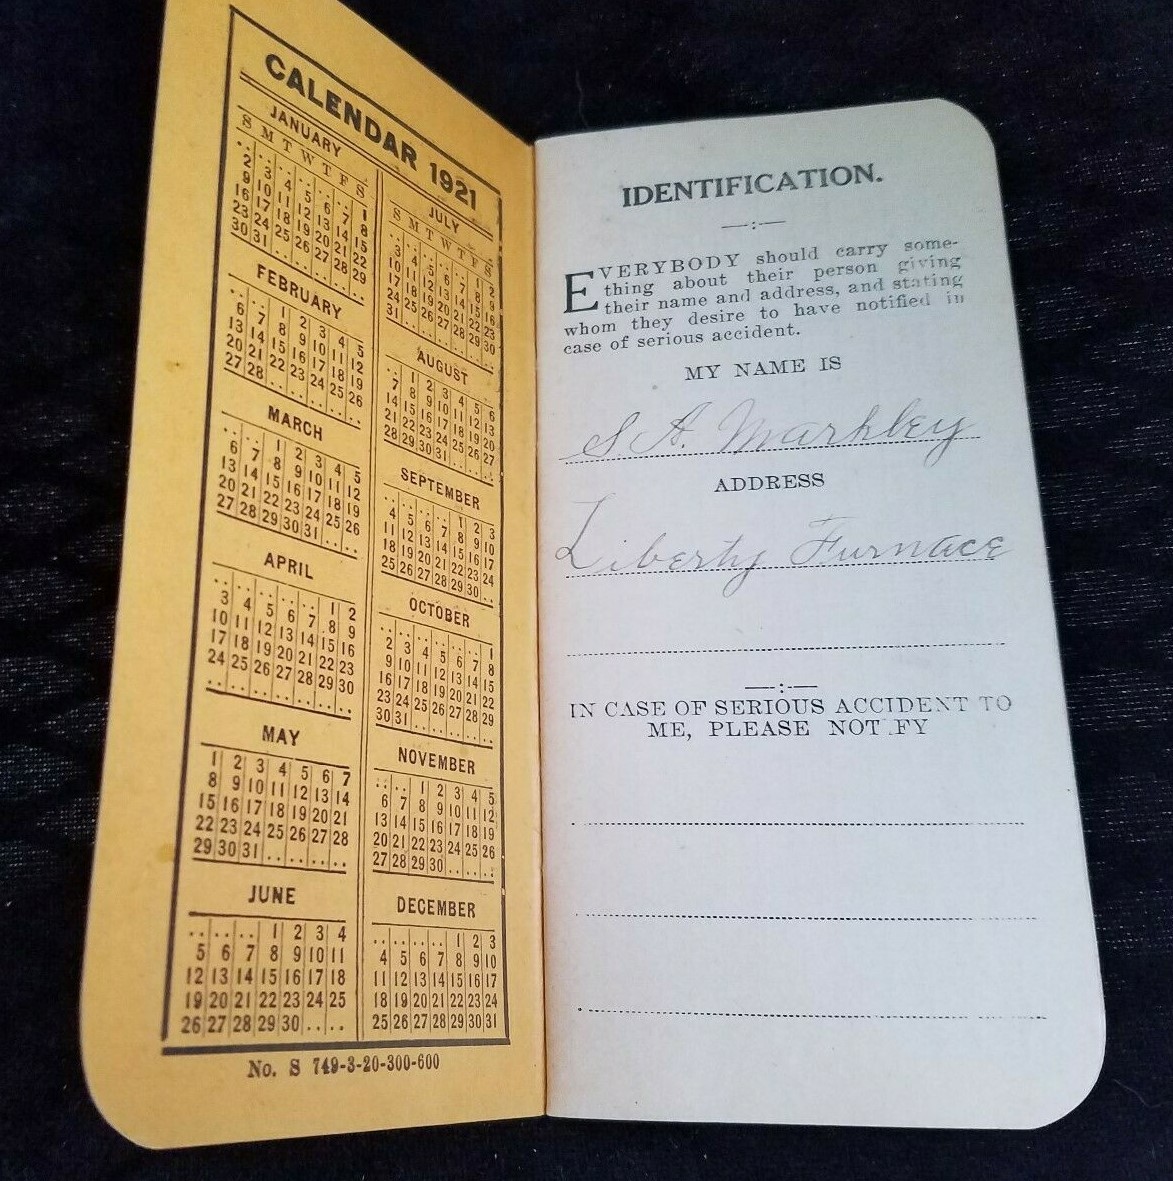 CALENDAR 1921
JANUARY
S M T W T F S
.. .. .. .. .. .. 1
2 3 4 5 6 7 8
9 10 11 12 13 14 15
16 17 18 19 20 21 22
23 24 25 26 27 28 29
30 31 .. .. .. .. ..
FEBRUARY
.. .. 1 2 3 4 5
6 7 8 9 10 11 12
13 14 15 16 17 18 19
20 21 22 23 24 25 26
27 28 .. .. .. .. ..
MARCH
.. .. 1 2 3 4 5
6 7 8 9 10 11 12
13 14 15 16 17 18 19
20 21 22 23 24 25 26
27 28 29 30 31 .. ..
APRIL
.. .. .. .. .. 1 2
3 4 5 6 7 8 9
10 11 12 13 14 15 16
17 18 19 20 21 22 23
24 25 26 27 28 29 30
.. .. .. .. .. .. ..
MAY
1 2 3 4 5 6 7
8 9 10 11 12 13 14
15 16 17 18 19 20 21
22 23 24 25 26 27 28
29 30 31 .. .. .. ..
JUNE
.. .. .. 1 2 3 4
5 6 7 8 9 10 11
12 13 14 15 16 17 18
19 20 21 22 23 24 25
26 27 28 29 30 .. ..
JULY
S M T W T F S
.. .. .. .. .. 1 2
3 4 5 6 7 8 9
10 11 12 13 14 15 16
17 18 19 20 21 22 23
24 25 26 27 28 29 30
31 .. .. .. .. .. ..
AUGUST
.. 1 2 3 4 5 6
7 8 9 10 11 12 13
14 15 16 17 18 19 20
21 22 23 24 25 26 27
28 29 30 31 .. .. ..
SEPTEMBER
.. .. .. .. 1 2 3
4 5 6 7 8 9 10
11 12 13 14 15 16 17
18 19 20 21 22 23 24
25 26 27 28 29 30 ..
OCTOBER
.. .. .. .. .. .. 1
2 3 4 5 6 7 8
9 10 11 12 13 14 15
16 17 18 19 20 21 22
23 24 25 26 27 28 29
30 31 .. .. .. .. ..
NOVEMBER
.. .. 1 2 3 4 5
6 7 8 9 10 11 12
13 14 15 16 17 18 19
20 21 22 23 24 25 26
27 28 29 30 .. .. ..
DECEMBER
.. .. .. .. 1 2 3
4 5 6 7 8 9 10
11 12 13 14 15 16 17
18 19 20 21 22 23 24
25 26 27 28 29 30 31
No. S 749-3-20-300-600
IDENTIFICATION.
EVERYBODY should carry some-
thing about their person giving
their name and address, and stating
whom they desire to have notified in
case of serious accident.
MY NAME IS
S. A. Markley
ADDRESS
Liberty Furnace
IN CASE OF SERIOUS ACCIDENT TO
ME, PLEASE NOT FY